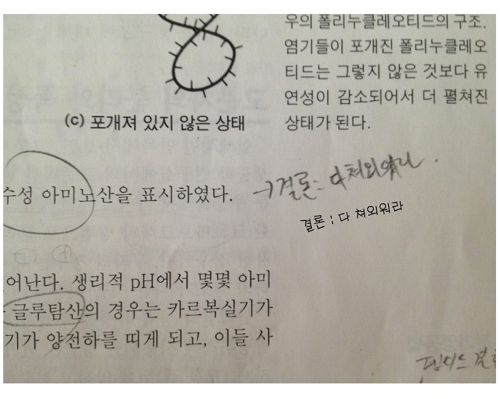 우의 폴리누클레오티드의 구조.
염기들이 포개진 폴리누클레오
티드는 그렇지 않은 것보다 유
연성이 감소되어서 더 펼쳐진
상태가 된다.
(c) 포개져 있지 않은 상태
수성 아미노산을 표시하였다.
→결론: 다 쳐외워라.
결론 : 다 쳐외워라
어난다. 생리적 pH에서 몇몇 아미
글루탐산의 경우는 카르복실기가
기가 양전하를 띠게 되고, 이들 사